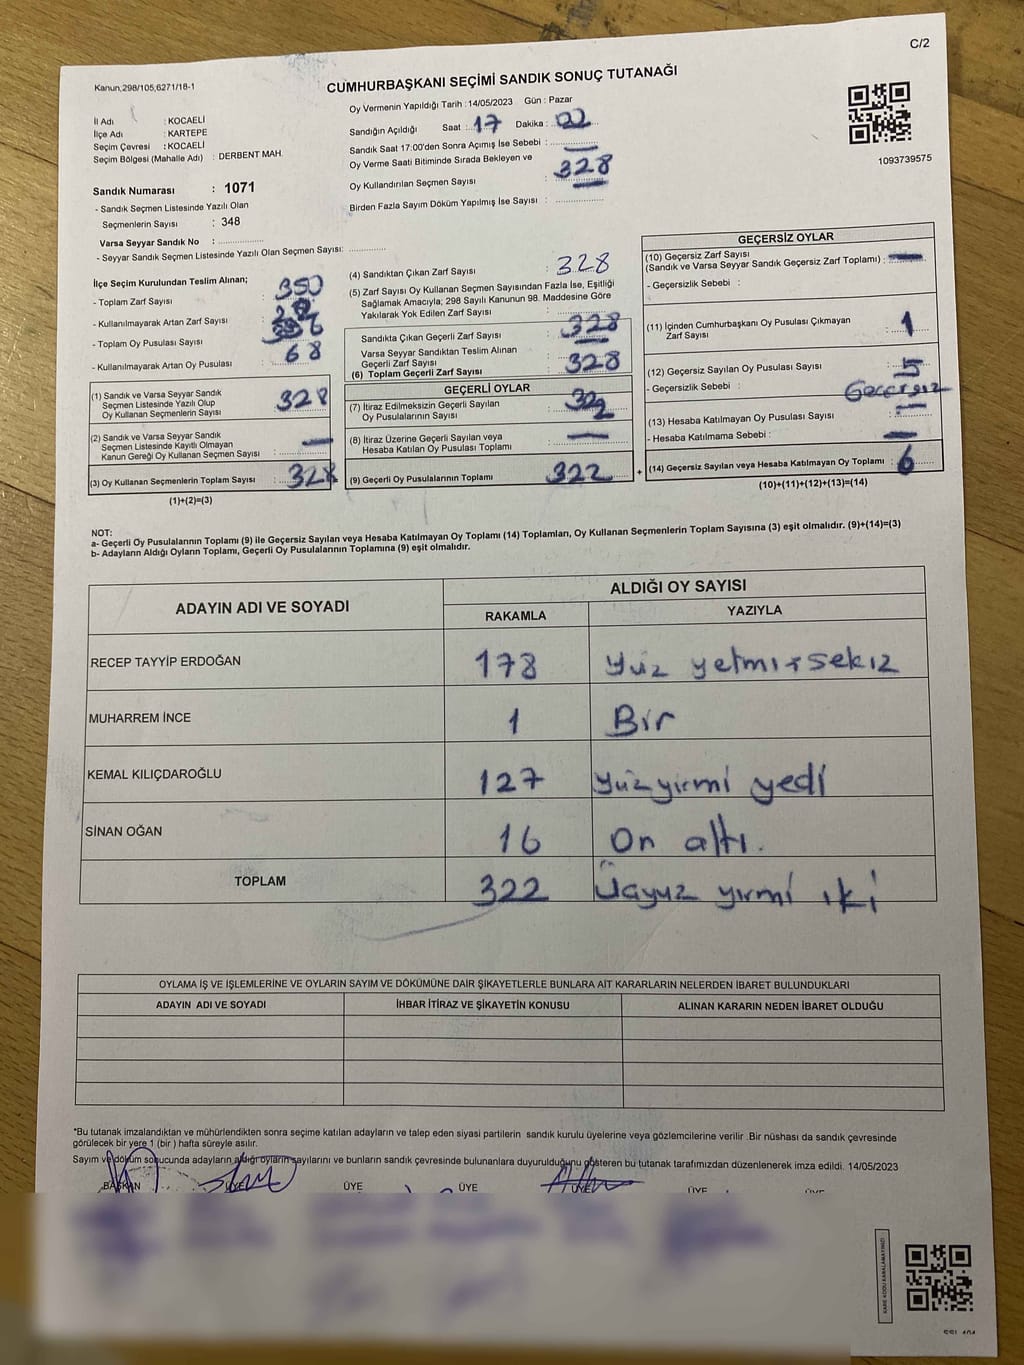 C/2
Kanun,298/105,6271/18-1
CUMHURBAŞKANI SEÇİMİ SANDIK SONUÇ TUTANAĞI
İl Adı : KOCAELİ
İlçe Adı : KARTEPE
Seçim Çevresi : KOCAELİ
Seçim Bölgesi (Mahalle Adı) : DERBENT MAH.
Sandık Numarası : 1071
- Sandık Seçmen Listesinde Yazılı Olan
Seçmenlerin Sayısı : 348
Varsa Seyyar Sandık No :
- Seyyar Sandık Seçmen Listesinde Yazılı Olan Seçmen Sayısı:
Oy Vermenin Yapıldığı Tarih : 14/05/2023 Gün : Pazar
Sandığın Açıldığı Saat : 17 Dakika :
Sandık Saat 17:00'den Sonra Açımış İse Sebebi : —
Oy Verme Saati Bitiminde Sırada Bekleyen ve
Oy Kullandırılan Seçmen Sayısı : 328
Birden Fazla Sayım Döküm Yapılmış İse Sayısı :
1093739575
İlçe Seçim Kurulundan Teslim Alınan;
- Toplam Zarf Sayısı : 350
- Kullanılmayarak Artan Zarf Sayısı :
- Toplam Oy Pusulası Sayısı :
- Kullanılmayarak Artan Oy Pusulası : 68
(1) Sandık ve Varsa Seyyar Sandık
Seçmen Listesinde Yazılı Olup
Oy Kullanan Seçmenlerin Sayısı : 328
(2) Sandık ve Varsa Seyyar Sandık
Seçmen Listesinde Kayıtlı Olmayan
Kanun Gereği Oy Kullanan Seçmen Sayısı : —
(3) Oy Kullanan Seçmenlerin Toplam Sayısı : 328
(1)+(2)=(3)
(4) Sandıktan Çıkan Zarf Sayısı : 328
(5) Zarf Sayısı Oy Kullanan Seçmen Sayısından Fazla İse, Eşitliği
Sağlamak Amacıyla; 298 Sayılı Kanunun 98. Maddesine Göre
Yakılarak Yok Edilen Zarf Sayısı :
Sandıkta Çıkan Geçerli Zarf Sayısı : 328
Varsa Seyyar Sandıktan Teslim Alınan
Geçerli Zarf Sayısı : —
(6) Toplam Geçerli Zarf Sayısı : 328
GEÇERLİ OYLAR
(7) İtiraz Edilmeksizin Geçerli Sayılan
Oy Pusulalarının Sayısı :
(8) İtiraz Üzerine Geçerli Sayılan veya
Hesaba Katılan Oy Pusulası Toplamı : —
(9) Geçerli Oy Pusulalarının Toplamı : 322
+
GEÇERSİZ OYLAR
(10) Geçersiz Zarf Sayısı
(Sandık ve Varsa Seyyar Sandık Geçersiz Zarf Toplamı) : —
- Geçersizlik Sebebi :
(11) İçinden Cumhurbaşkanı Oy Pusulası Çıkmayan
Zarf Sayısı : 1
(12) Geçersiz Sayılan Oy Pusulası Sayısı : 5
- Geçersizlik Sebebi : Geçersiz
(13) Hesaba Katılmayan Oy Pusulası Sayısı : —
- Hesaba Katılmama Sebebi : —
(14) Geçersiz Sayılan veya Hesaba Katılmayan Oy Toplamı : 6
(10)+(11)+(12)+(13)=(14)
NOT:
a- Geçerli Oy Pusulalarının Toplamı (9) ile Geçersiz Sayılan veya Hesaba Katılmayan Oy Toplamı (14) Toplamları, Oy Kullanan Seçmenlerin Toplam Sayısına (3) eşit olmalıdır. (9)+(14)=(3)
b- Adayların Aldığı Oyların Toplamı, Geçerli Oy Pusulalarının Toplamına (9) eşit olmalıdır.
ADAYIN ADI VE SOYADI ALDIĞI OY SAYISI
RAKAMLA YAZIYLA
RECEP TAYYİP ERDOĞAN 178 Yüz yetmiş sekiz
MUHARREM İNCE 1 Bir
KEMAL KILIÇDAROĞLU 127 Yüz yirmi yedi
SİNAN OĞAN 16 On altı.
TOPLAM 322 Üçyüz yirmi iki
OYLAMA İŞ VE İŞLEMLERİNE VE OYLARIN SAYIM VE DÖKÜMÜNE DAİR ŞİKAYETLERLE BUNLARA AİT KARARLARIN NELERDEN İBARET BULUNDUKLARI
ADAYIN ADI VE SOYADI İHBAR İTİRAZ VE ŞİKAYETİN KONUSU ALINAN KARARIN NEDEN İBARET OLDUĞU
*Bu tutanak imzalandıktan ve mühürlendikten sonra seçime katılan adayların ve talep eden siyasi partilerin sandık kurulu üyelerine veya gözlemcilerine verilir .Bir nüshası da sandık çevresinde
görülecek bir yere 1 (bir ) hafta süreyle asılır.
Sayım ve döküm sonucunda adayların aldığı oyların sayılarını ve bunların sandık çevresinde bulunanlara duyurulduğunu gösteren bu tutanak tarafımızdan düzenlenerek imza edildi. 14/05/2023
BAŞKAN ÜYE ÜYE ÜYE ÜYE ÜYE ÜYE
KARE KODU KARALAMAYINIZ!